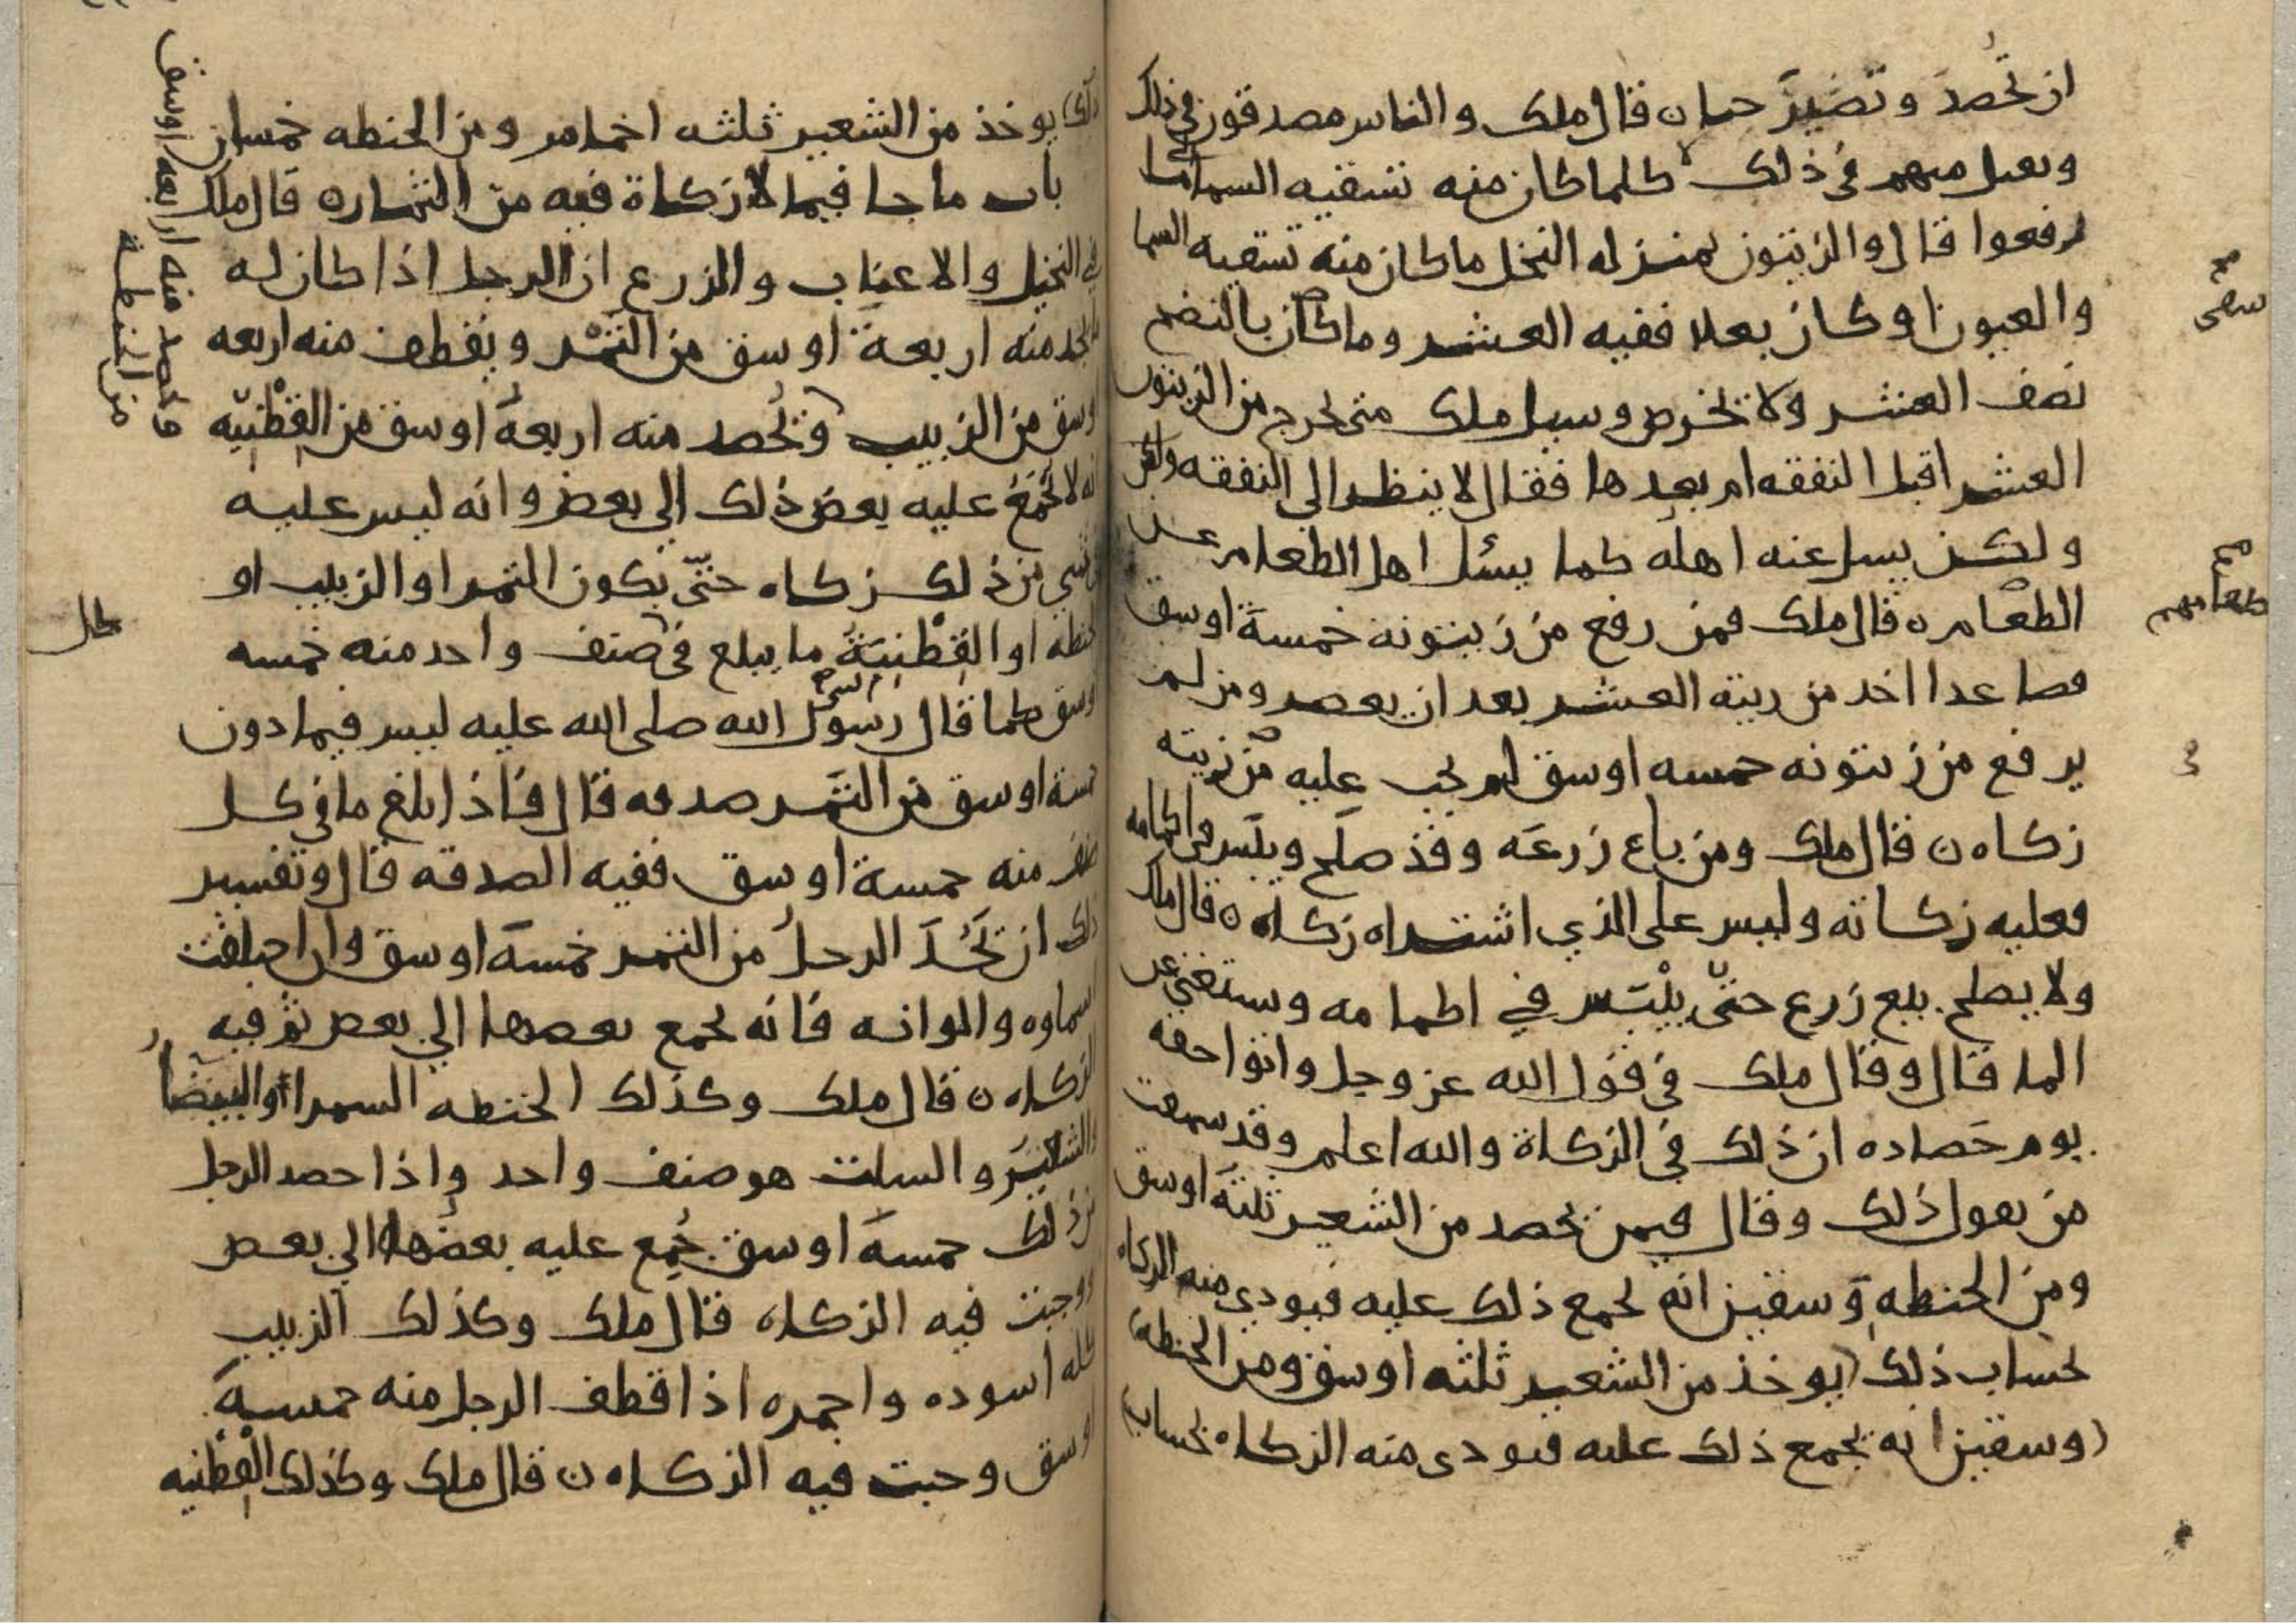 ان تُحصدَ وتصيرَ حبا ن قال ملك والناس مصدقون في ذلك
ويقبل منهم في ذلك كلما كان منه تسقيه السما كما
رفعوا قال والزيتون بمنزله النخل ما كان منه تسقيه السما
والعيون او كان بعلا ففيه العشر وما كان بالنضح
نصف العشر ولا يخرص وسيل ملك متى يخرج من الزيتون
العشر اقبل النفقه ام بعدها فقال لا ينظر الى النفقه
ولكن يسل عنه اهله كما يسئل اهل الطعام عن
الطعام ن قال ملك فمن رفع من زيتونه خمسة اوسق
فصاعدا اخد من زيته العشر بعد ان يعصر ومن لم
يرفع من زيتونه خمسه اوسق لم يجب عليه من زيته
زكاه ن قال ملك ومن باع زرعَه وقد صلح ويبس في اكمامه
فعليه زكاته وليس على الذي اشتراه زكاه ن قال ملك
ولا يصلح بيع زرع حتّى ييْبَس في اكمامه ويستغني عن
الما قال وقال ملك في قول الله عز وجل واتوا حقه
يوم حَصاده ان ذلك في الزكاة والله اعلم وقد سمعت
من يقول ذلك وقال فيمن يحصد من الشعير ثلثة اوسق
ومن الحنطه وسقين انه يجمع ذلك عليه فيودي منه الزكاه
بحساب ذلك (يوخذ من الشعير ثلثه اوسق ومن الحنطه
(وسقين انه يجمع ذلك عليه فيودى منه الزكاه بحساب
سقى
طعامهم
ذلك) يوخذ من الشعير ثلثه اخماس ومن الحنطه خمسان
باب ما جا فيما لا زكاة فيه من الثمار ه قال ملك
في النخيل والاعناب والزرع ان الرجل اذا كان له
ما يجد منه اربعة اوسق من التمْر ويقطف منه اربعه
اوسق من الزبيب ويُحصد منه اربعةُ اوسق من القِطْنِيّه
انه لا يُجْمَعُ عليه بعض ذلك الي بعض وانه ليس عليه
في شي من ذلك زكاه حتّى يكون التمر او الزبيب او
الحنطه او القِطْنِيَةُ ما يبلع في صنف واحد منه خمسه
اوسق كما قال رسول الله صلى الله عليه ليس فيما دون
خمسة اوسق من التمَر صدقه قال فاذا بلغ ما في كل
صنف منه خمسة اوسق ففيه الصدقه قال وتفسير
ذلك ان يَجُدَّ الرجلُ من التمر خمسةَ اوسق وان اختلفت
اسماوه والوانه فانه يجمع بعضها الي بعض ثم فيه
الزكاه ن قال ملك وكذلك الحنطه السمرا والبيضا
والشعير والسلت هو صنف واحد واذا حصد الرجل
من ذلك خمسةَ اوسق جُمع عليه بعضُها الي بعض
ووجبت فيه الزكاه قال ملك وكذلك الزبيب
كله اسوده واحمره اذا قطف الرجل منه خمسةَ
اوسق وجبت فيه الزكاه ن قال ملك وكذلك القِطْنِيه
ويحصد منه اربعه اوسق
من الحنطة